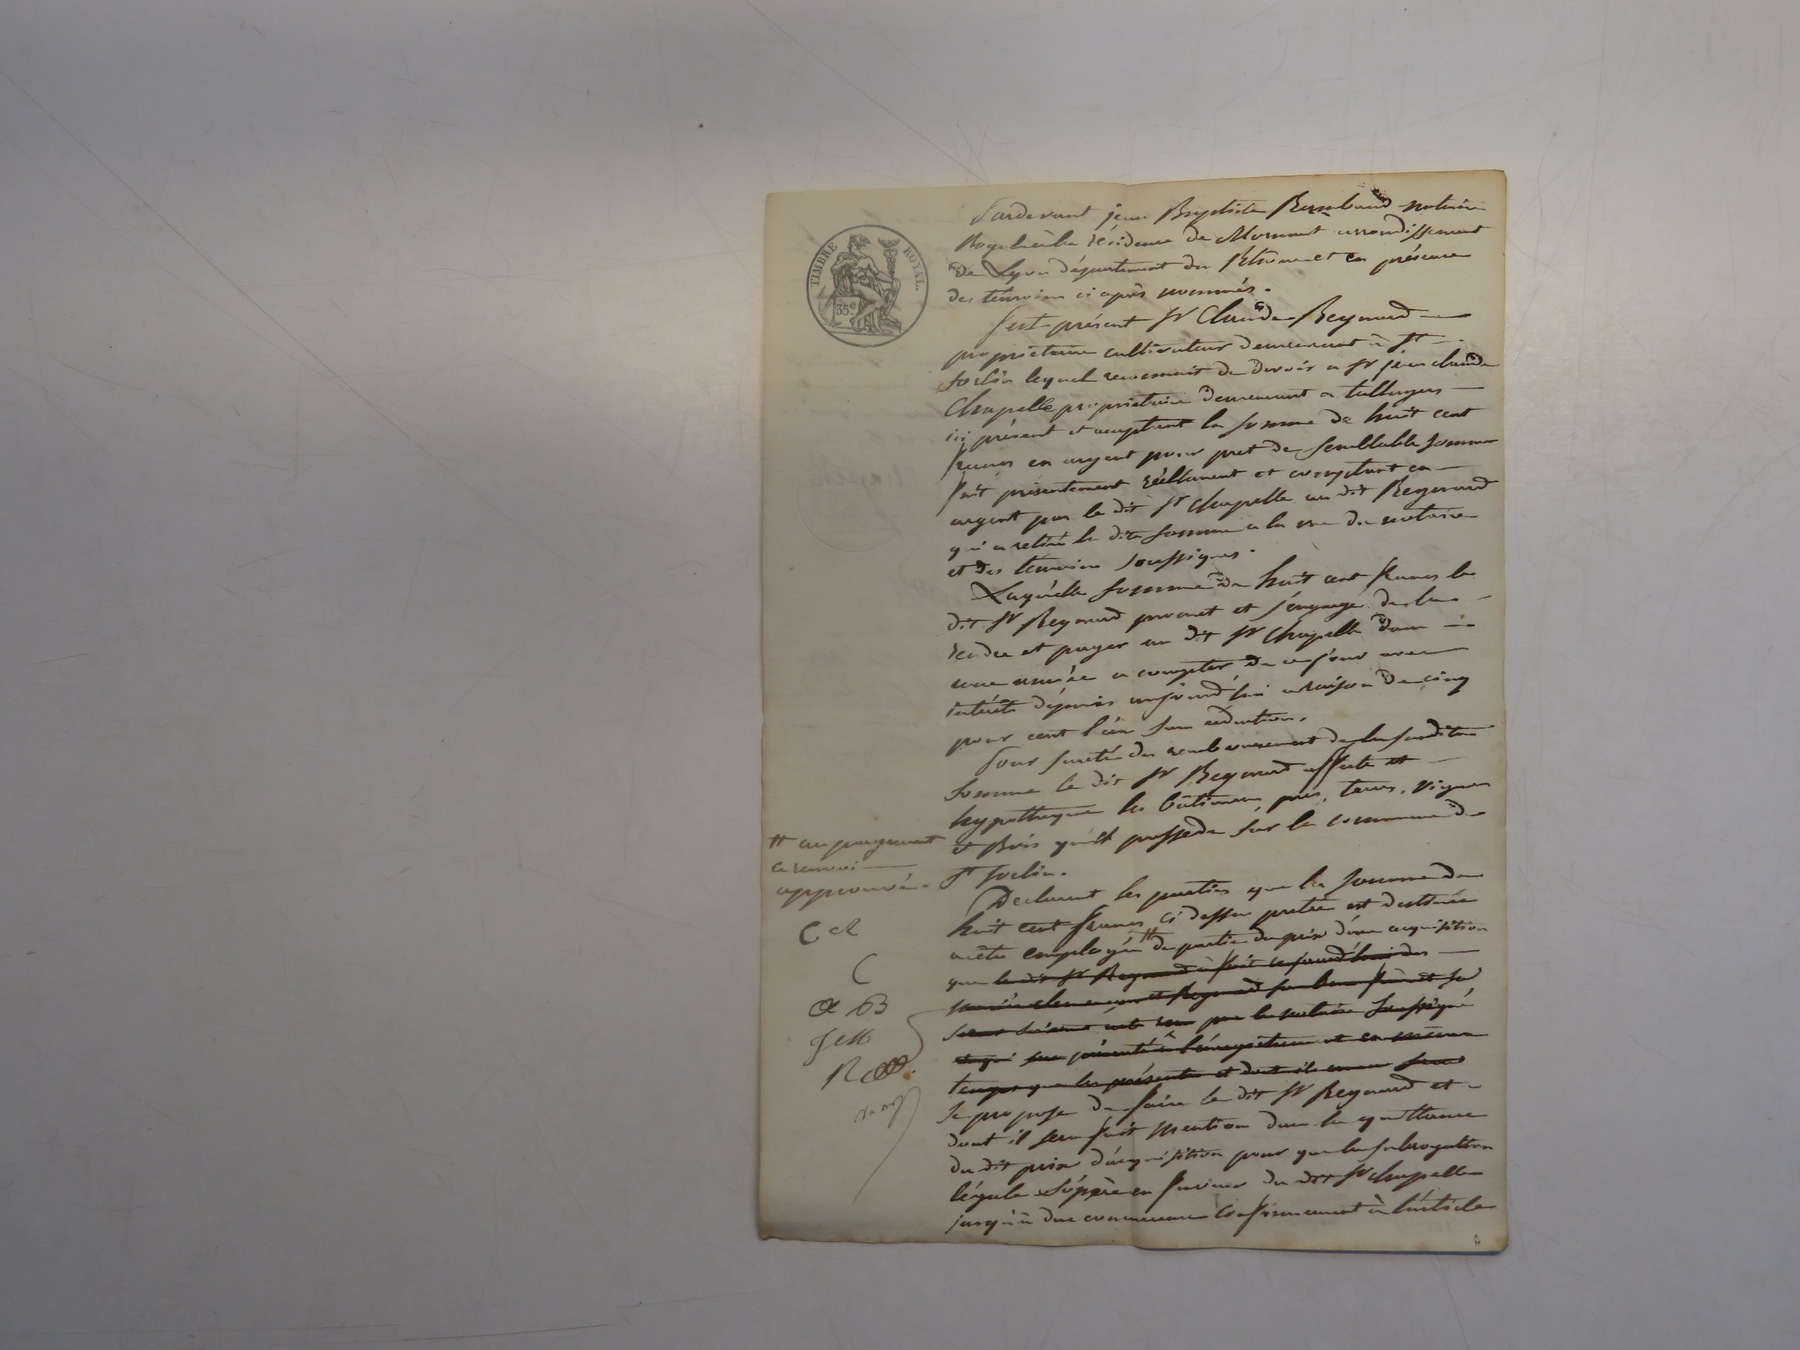 TIMBRE ROYAL.
35c
Pardevant jean Baptiste Rambaud notaire
Royal à la résidence de Mornant arrondissement
de Lyon département du Rhône et en présence
des temoins ci après nommés.
fut présent Sr Claude Reynard
propriétaire cultivateur demeurant à St
Sorlin lequel reconnait de devoir a Sr jean claude
Chapelle propriétaire demeurant a talluyers
ici présent et acceptant la somme de huit cent
francs en argent pour pret de semblable somme
fait présentement réellement et comptant en
argent par le dit Sr Chapelle au dit Reynard
qui a retiré la dite somme a la vue du notaire
et des témoins soussignés.
Laquelle somme de huit cent francs le
dit Sr Reynard promet et s'engage de la
rendre et payer au dit Sr Chapelle dans
une année a compter de ce jour avec
intérêts dépuis aujourd'hui a raison de cinq
pour cent l'an sans réduction.
Pour sureté du remboursement de la susdite
somme le dit Sr Reynard affecte et
hypothèque les bâtimens, prés, terres, vignes
et Bois qu'il possede sur la commune de
St Sorlin.
Declarent les parties que la somme de
huit cent francs ci dessus pretée est destinée
a être employée # de partie du prix d'une acquisition
que le dit Sr Reynard à fait ce jourd'hui des
Reynard
par le notaire soussigné
qui sera présenté à l'énregistrement et en même
temps que les présentes et dont il
se propose de faire le dit Sr Reynard et
dont il sera fait mention dans la quittance
du dit prix d'acquisition pour que la subrogation
légale s'opère en faveur du dit Sr chapelle
jusqu'à due concurrence conformement à l'article
# au payement
ce renvoi
approuvé.
C R
C
B
R